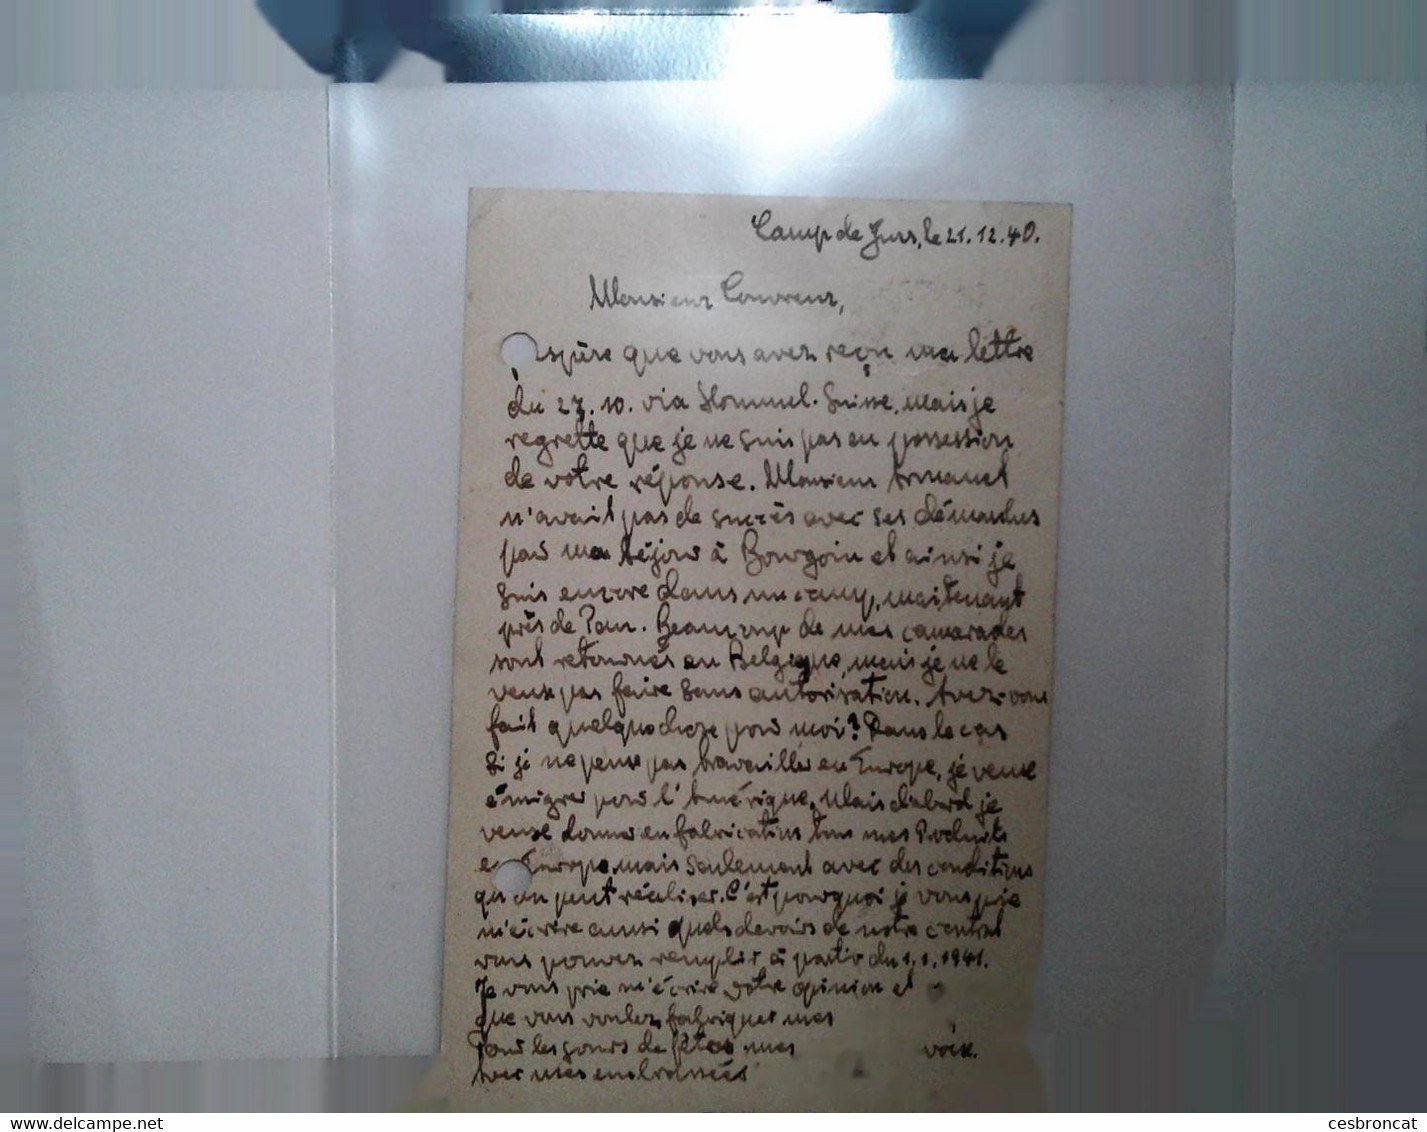 Camp de Gurs, le 21.12.40.
Monsieur Couvreur,
espère que vous avez reçu ma lettre
du 27.10. via Hommel. Suisse, mais je
regrette que je ne suis pas en possession
de votre réponse. Monsieur
n'avait pas de succès avec ses démandes
pour ma séjour à Bourgoin et ainsi je
suis encore dans un camp, maitenant
près de Pau. Beaucoup de mes camarades
sont retournés en Belgique, mais je ne le
veux pas faire sans autorisation. Avez-vous
fait quelquechose pour moi? Dans le cas
si je ne peux pas travailler en Europe, je veux
émigrer pour l'Amérique. Mais d'abord je
veux donner en fabrication tous mes Produits
en Europe, mais seulement avec des conditions
qu'on peut réaliser. C'est pourquoi je vous prie
m'écrire aussi quels devoirs de notre contrat
vous pouvez remplir à partir du 1.1.1941.
Je vous prie m'écrire votre opinion et
que vous voulez fabriquer mes
Pour les jours de fêtes mes voix.
Avec mes embrassées
delcampe.net
cesbroncat